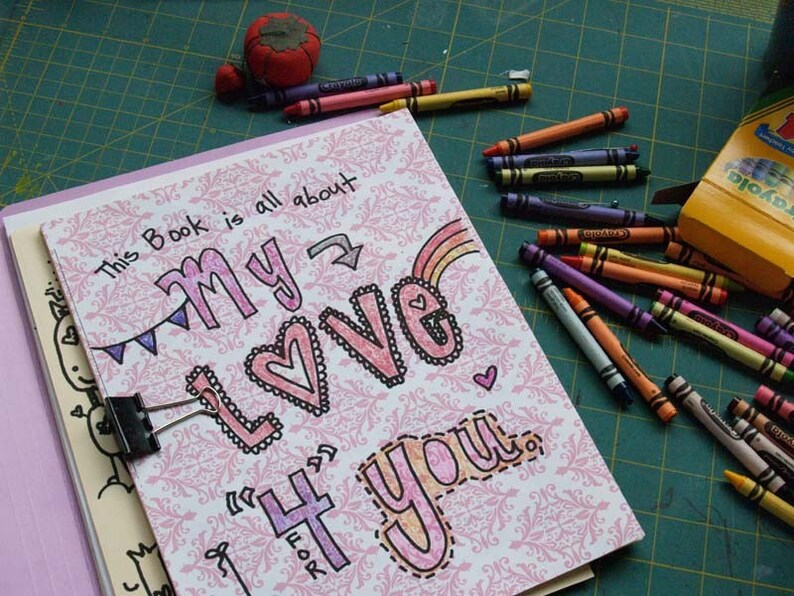 This Book is all about
My
Love
"4"
FOR
You.
Crayola
Crayola